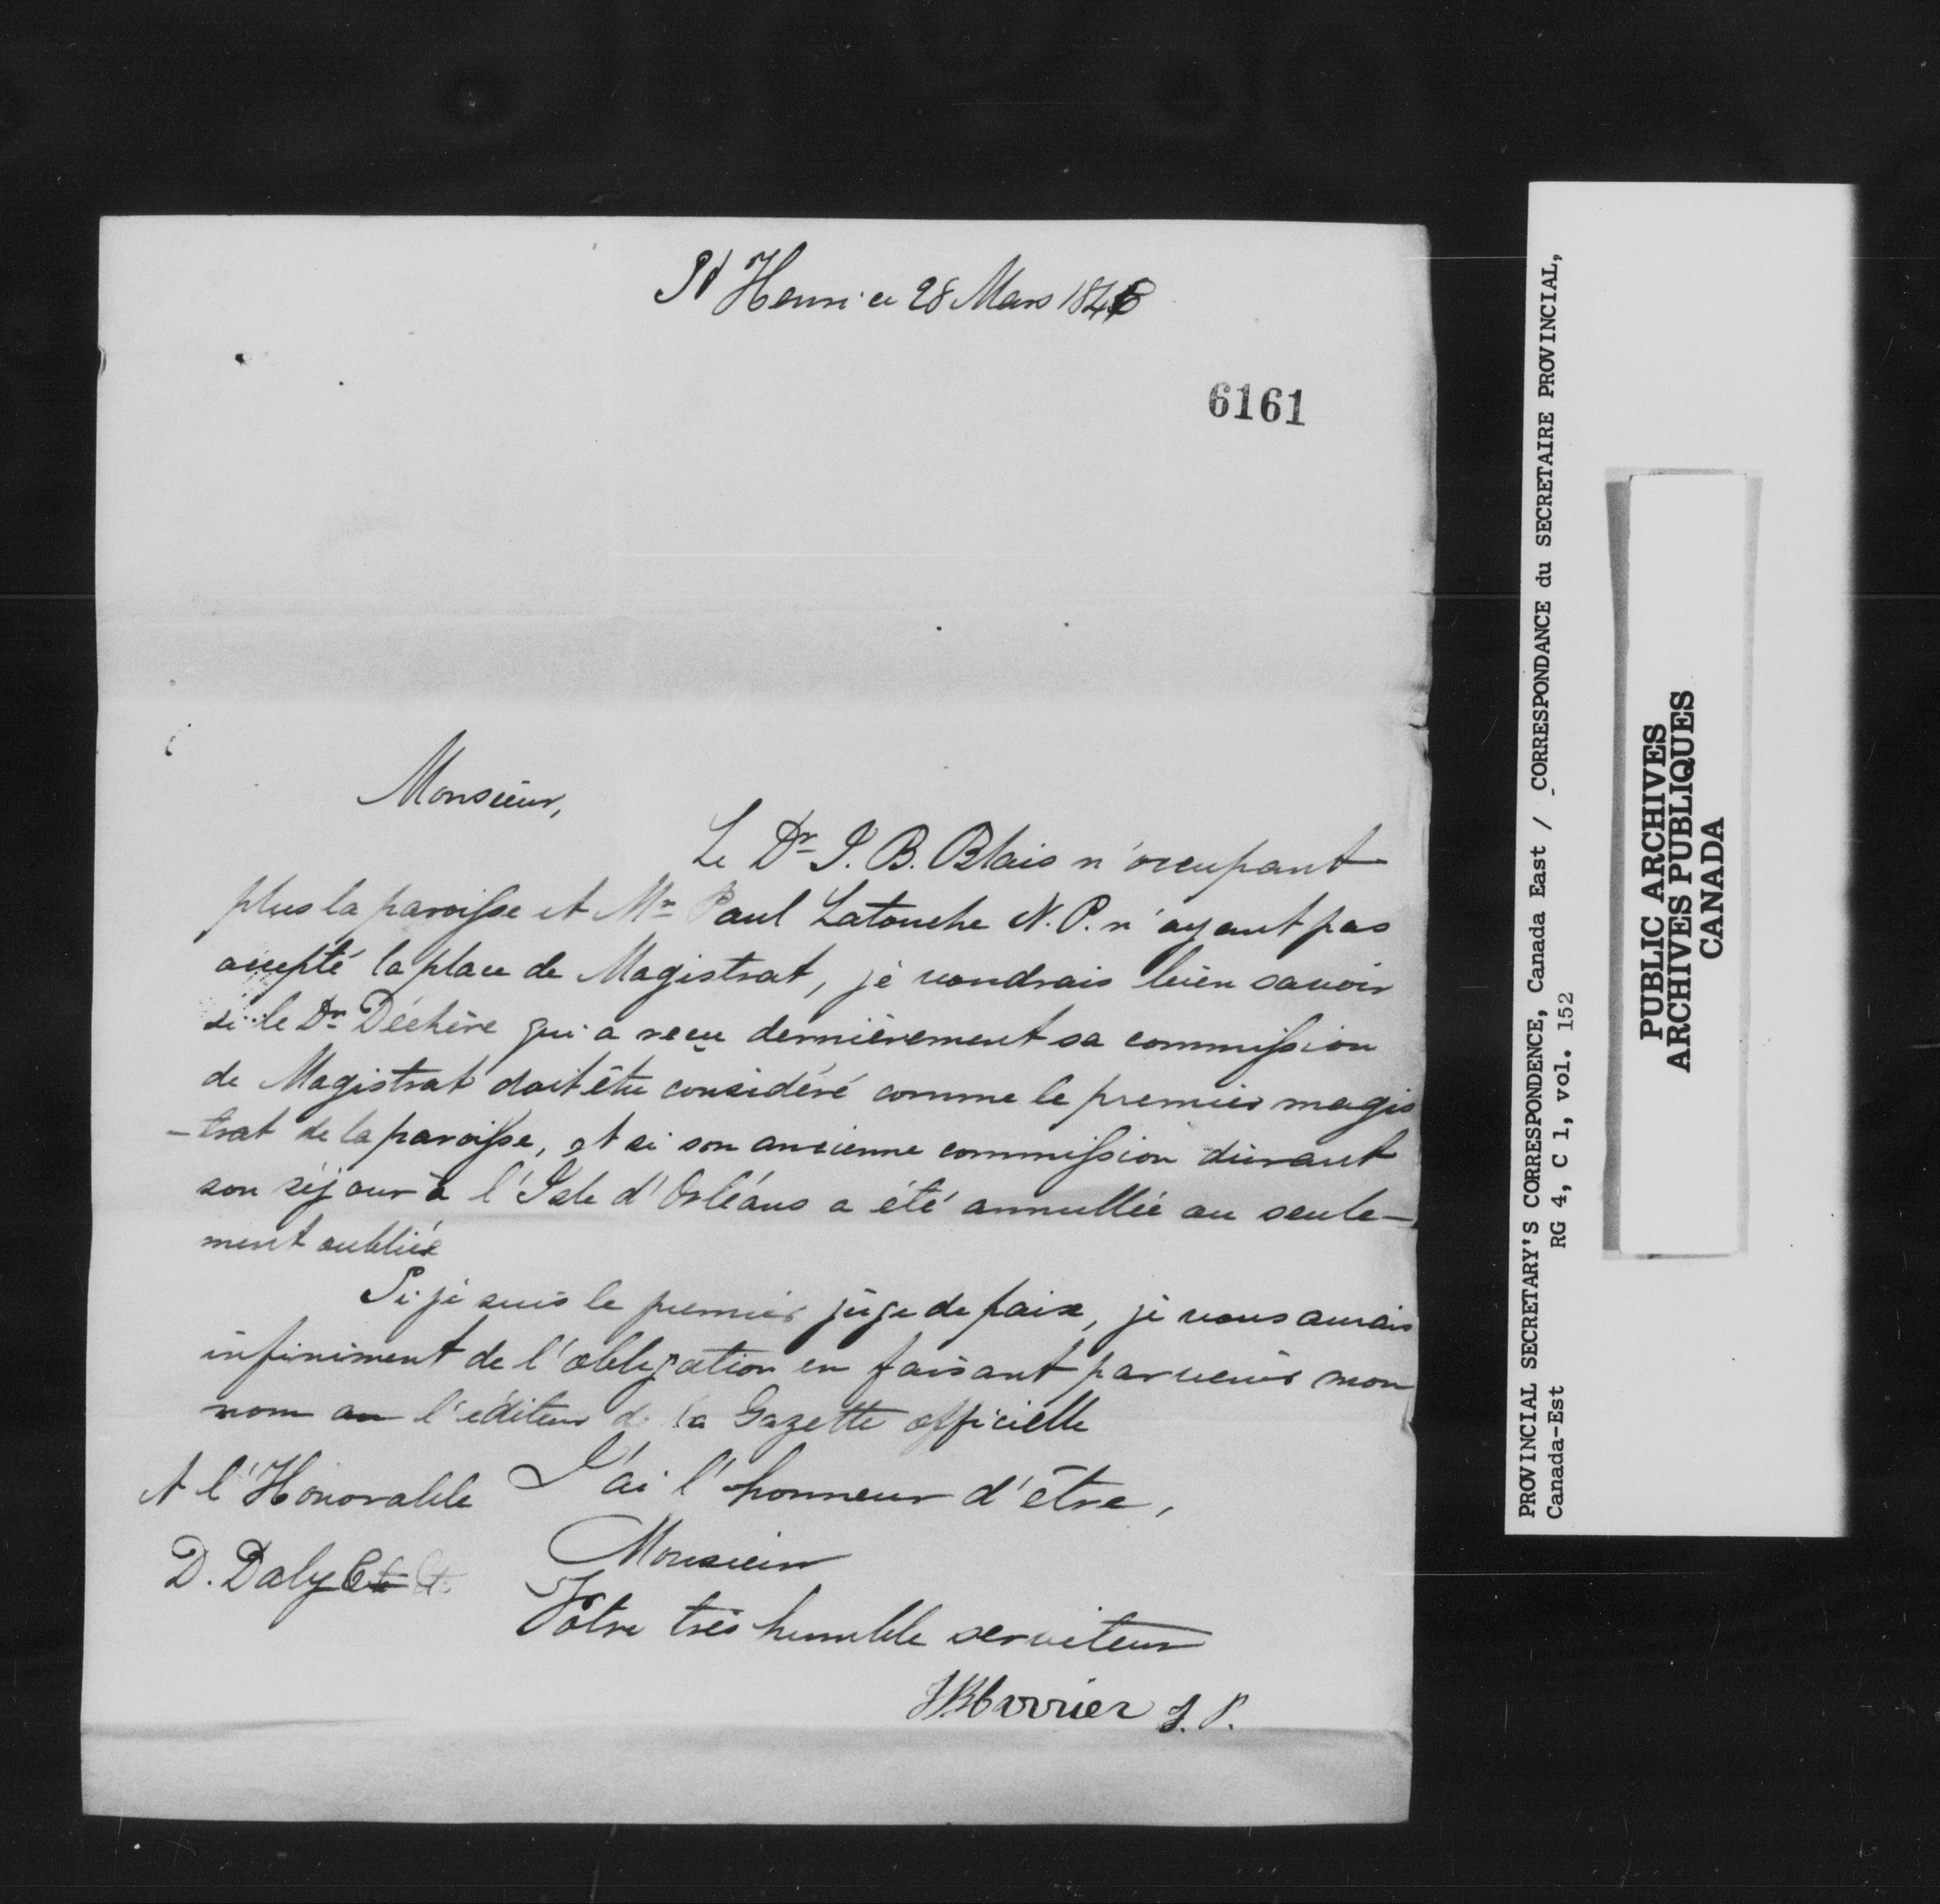 St Henri ce 28 Mars 184
6161
Monsieur,
Le Dr J. B. Blais n'occupant
plus la paroisse et Mr Paul Latouche N. P. n'ayant pas
accepté la place de Magistrat, je voudrais bien savoir
si le Dr Déchène qui a reçu dernièrement sa commission
de Magistrat doit être considéré comme le premier magis
-trat de la paroisse, et si son ancienne commission durant
son séjour à l'Isle d'Orléans a été annullée ou seule-
ment oubliée
Si je suis le premier juge de paix, je vous aurais
infiniment de l'obligation en faisant parvenir mon
nom au l'éditeur de la Gazette officielle
J'ai l'honneur d'être,
Monsieur
Votre très humble serviteur
J. P.
A l'Honorable
D. Daly Etc Etc
PROVINCIAL SECRETARY'S CORRESPONDENCE, Canada East / CORRESPONDANCE du SECRETAIRE PROVINCIAL,
Canada-Est RG 4, C 1, vol. 152
PUBLIC ARCHIVES
ARCHIVES PUBLIQUES
CANADA